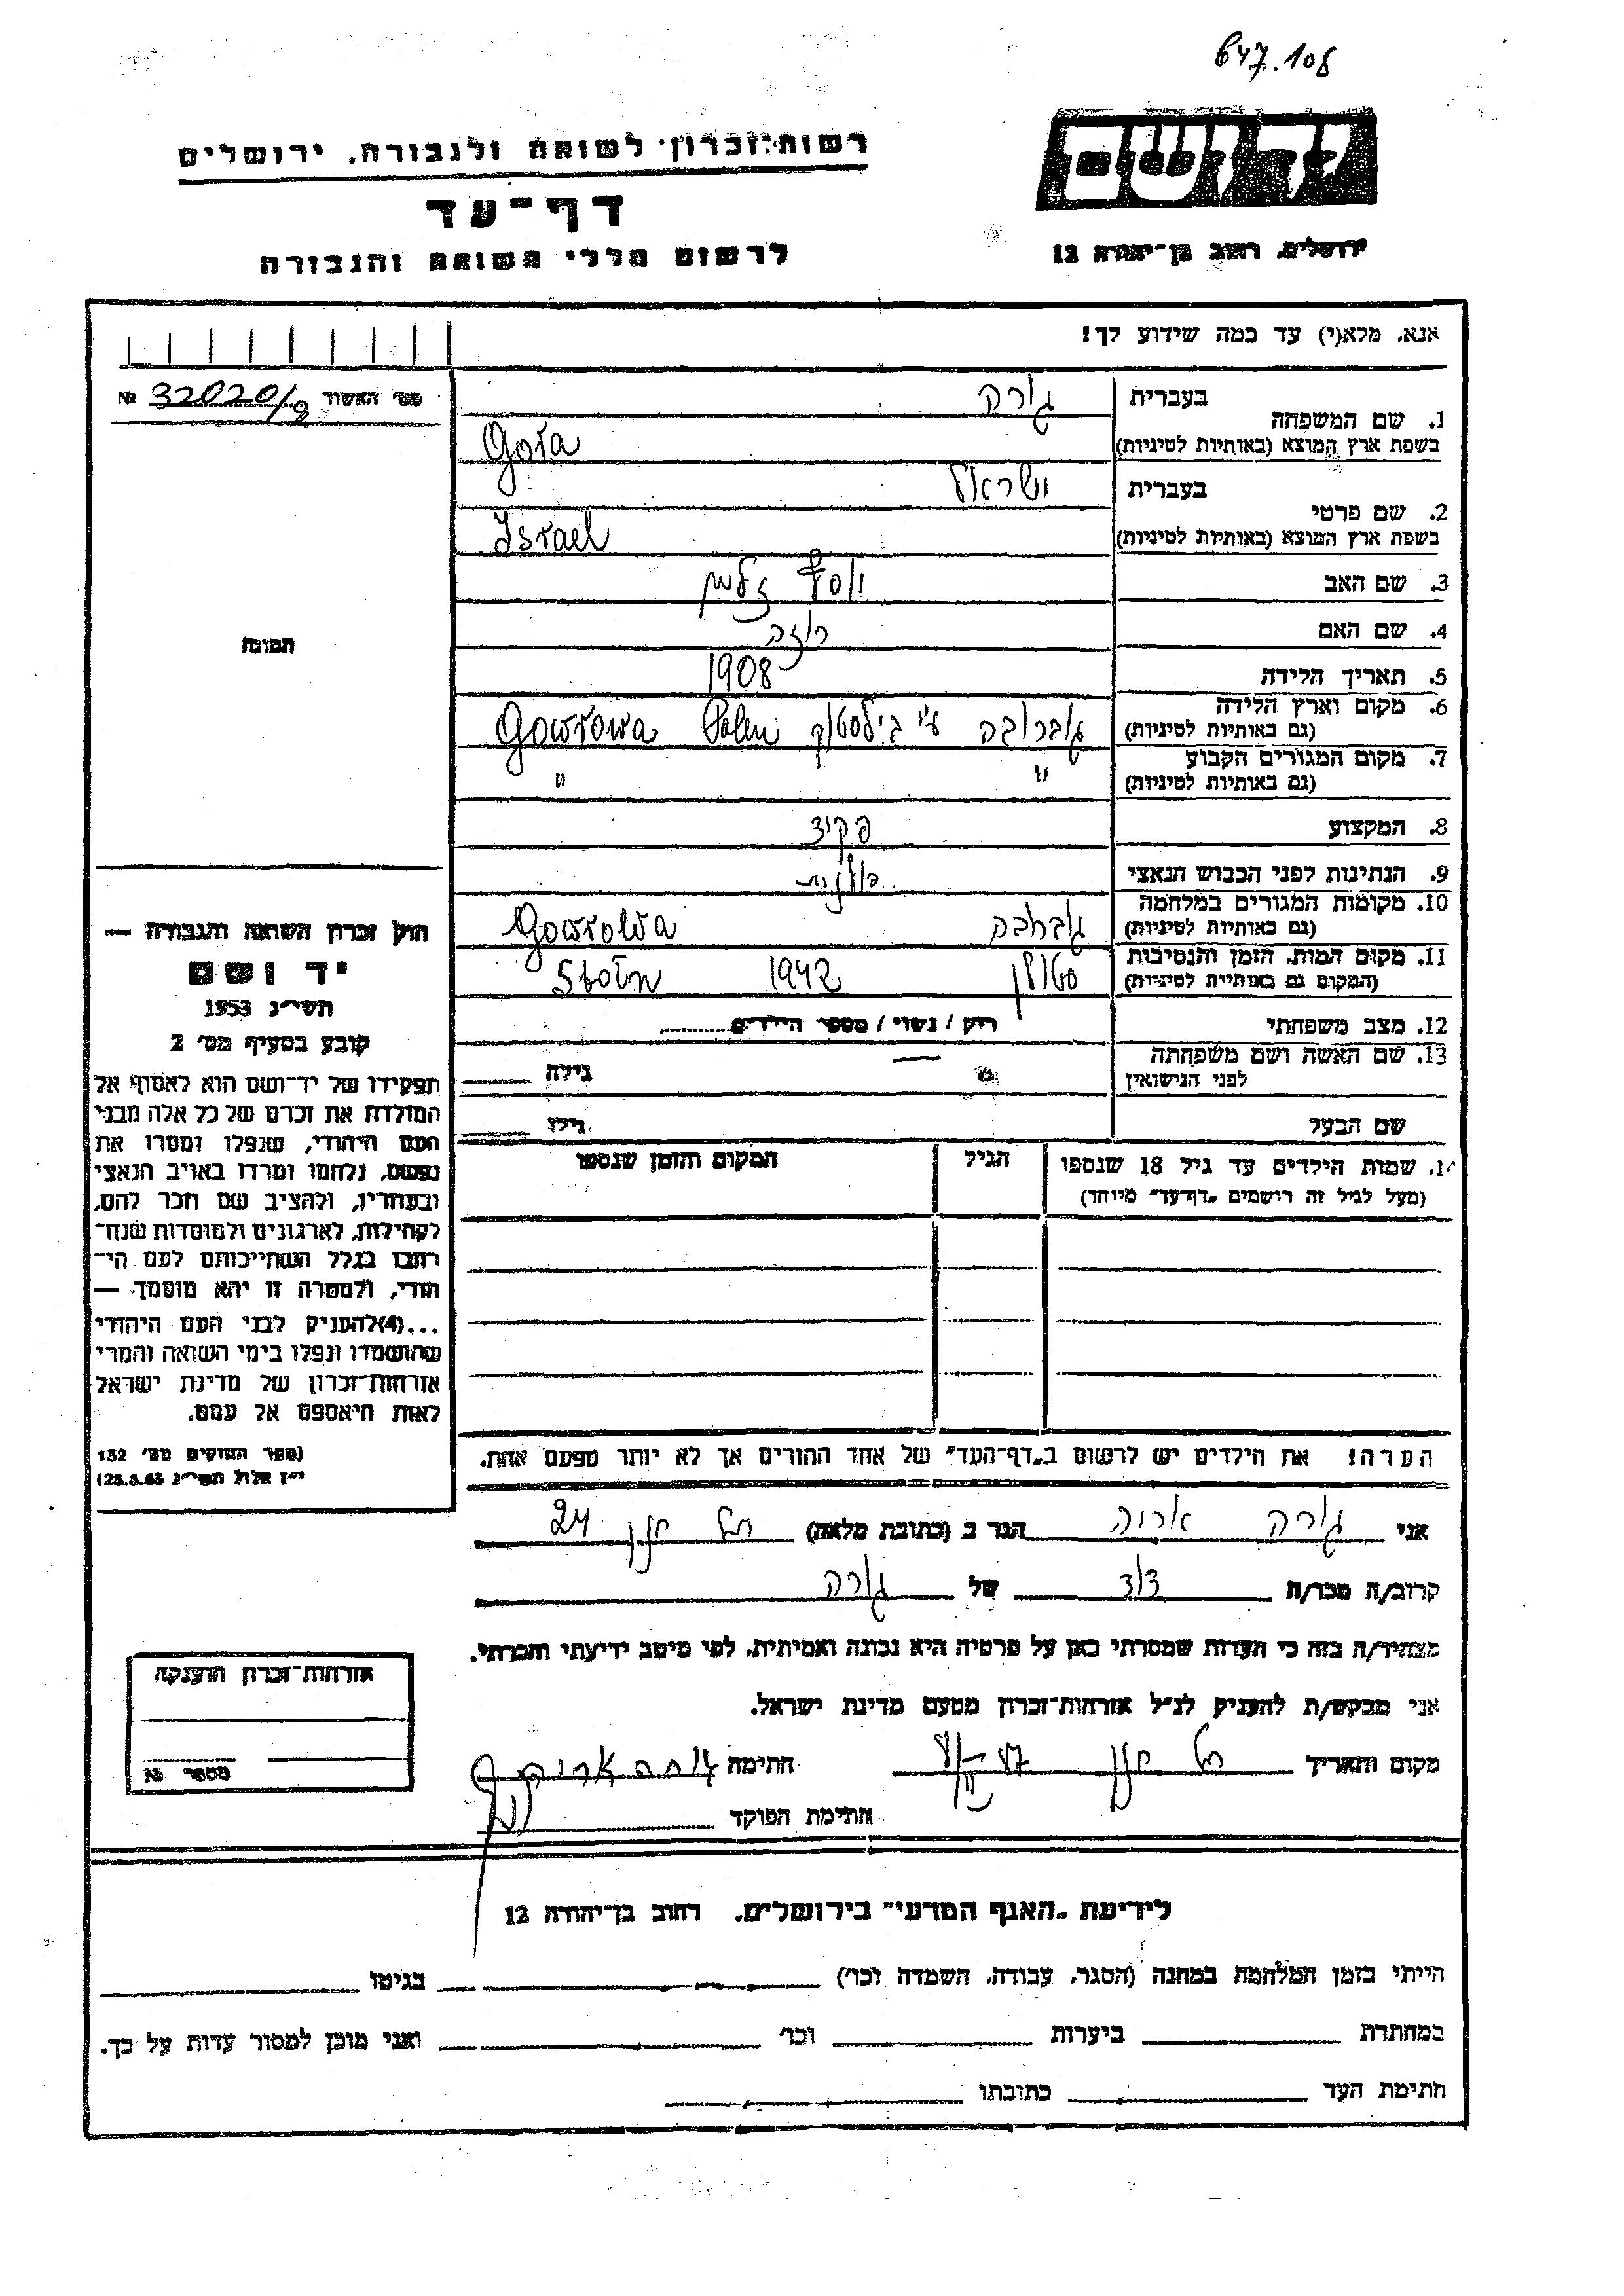 647.108
יד ושם
ירושלים, רחוב בן־יהודה 12
רשות־זכרון לשואה ולגבורה, ירושלים
דף־עד
לרשום חללי השואה והגבורה
אנא, מלא(י) עד כמה שידוע לך!
מס׳ האשור № 32020/8
תמונה
1. שם המשפחה
בעברית גורה
בשפת ארץ המוצא (באותיות לטיניות) Gora
2. שם פרטי
בעברית ישראל
בשפת ארץ המוצא (באותיות לטיניות) Israel
3. שם האב יוסף זלמן
4. שם האם רוזה
5. תאריך הלידה 1908
6. מקום וארץ הלידה גוברובה ע״י ביאליסטוק Polen Goworowa
(גם באותיות לטיניות)
7. מקום המגורים הקבוע " "
(גם באותיות לטיניות)
8. המקצוע פקיד
9. הנתינות לפני הכבוש הנאצי פולנית
10. מקומות המגורים במלחמה Goworowa
(גם באותיות לטיניות)
11. מקום המות, הזמן והנסיבות סטולין 1942 Stolin
(המקום גם באותיות לטיניות)
12. מצב משפחתי רווק / נשוי / מספר הילדים
13. שם האשה ושם משפחתה גילה
לפני הנישואין
שם הבעל גילו
14. שמות הילדים עד גיל 18 שנספו הגיל המקום והזמן שנספו
(מעל לגיל זה רושמים „דף־עד״ מיוחד)
הערה! את הילדים יש לרשום ב„דף־העד״ של אחד ההורים אך לא יותר מפעם אחת.
חוק זכרון השואה והגבורה —
יד ושם
תשי״ג 1953
קובע בסעיף מס׳ 2
תפקידו של יד־ושם הוא לאסוף אל
המולדת את זכרם של כל אלה מבני
העם היהודי, שנפלו ומסרו את
נפשם, נלחמו ומרדו באויב הנאצי
ובעוזריו, ולהציב שם וזכר להם,
לקהילות, לארגונים ולמוסדות שנח־
רבו בגלל השתייכותם לעם הי־
הודי, ולמטרה זו יהא מוסמך —
...(4)להעניק לבני העם היהודי
שהושמדו ונפלו בימי השואה והמרי
אזרחות־זכרון של מדינת ישראל
לאות היאספם אל עמם.
(ספר החוקים מס׳ 132
י״ז אלול תשי״ג 28.8.53)
אני גורה אריה הגר ב (כתובת מלאה) תל חנן 24
קרוב/ה מכר/ה דוד של גורה
מצהיר/ה בזה כי העדות שמסרתי כאן על פרטיה היא נכונה ואמיתית, לפי מיטב ידיעתי והכרתי.
אני מבקש/ת להעניק לנ״ל אזרחות־זכרון מטעם מדינת ישראל.
מקום ותאריך תל חנן חתימה גורה אריה
חתימת הפוקד
אזרחות־זכרון הוענקה
מספר №
לידיעת „האגף המדעי״ בירושלים, רחוב בן־יהודה 12
הייתי בזמן המלחמה במחנה (הסגר, עבודה, השמדה וכו׳) בגיטו
במחתרת ביערות וכו׳ ואני מוכן למסור עדות על כך.
חתימת העד כתובתו